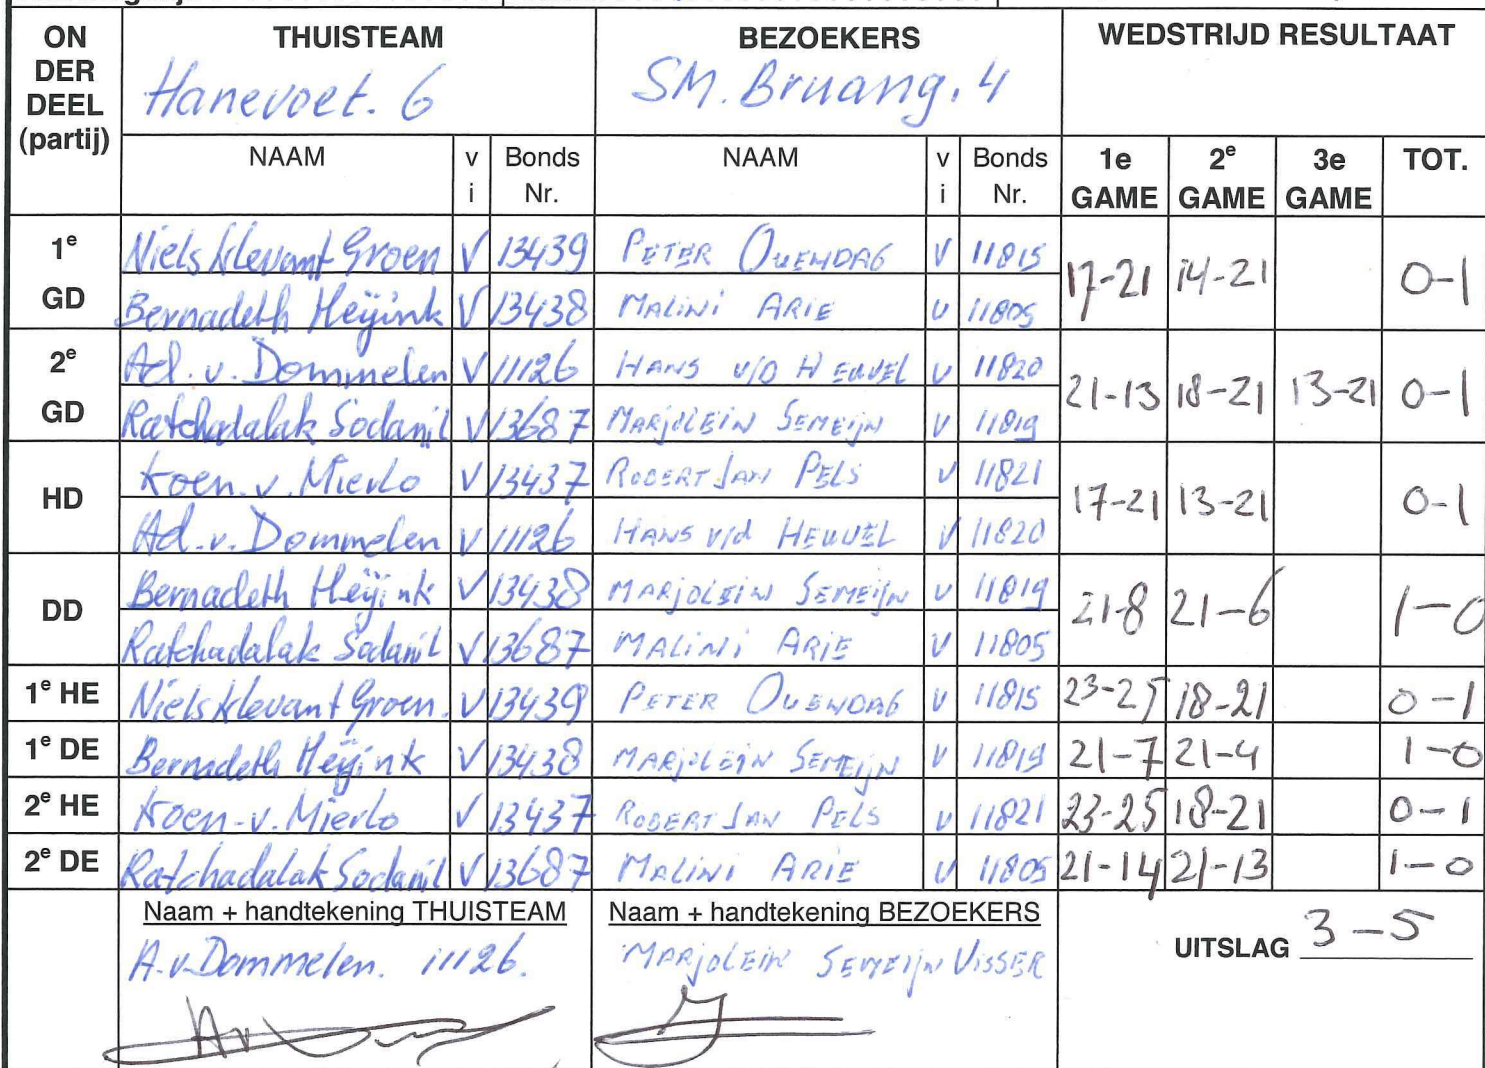 ON DER DEEL (partij) THUISTEAM BEZOEKERS WEDSTRIJD RESULTAAT
Hanevoet. 6 SM. Bruang. 4
NAAM v i Bonds Nr. NAAM v i Bonds Nr. 1e GAME 2e GAME 3e GAME TOT.
1e GD Niels Klevant Groen V 13439 PETER OUENDAG V 11815 17-21 14-21 0-1
Bernadeth Heijink V 13438 MALINI ARIE V 11805
2e GD Ad. v. Dommelen V 11126 HANS V/D HEUVEL V 11820 21-13 18-21 13-21 0-1
Ratchadalak Sodanil V 13687 MARJOLEIN SEMEIJN V 11819
HD Koen. v. Mierlo V 13437 ROBERT JAN PELS V 11821 17-21 13-21 0-1
Ad. v. Dommelen V 11126 HANS V/d HEUVEL V 11820
DD Bernadeth Heijink V 13438 MARJOLEIN SEMEIJN V 11819 21-8 21-6 1-0
Ratchadalak Sodanil V 13687 MALINI ARIE V 11805
1e HE Niels Klevant Groen. V 13439 PETER OUENDAG V 11815 23-25 18-21 0-1
1e DE Bernadeth Heijink V 13438 MARJOLEIN SEMEIJN V 11819 21-7 21-4 1-0
2e HE Koen-v. Mierlo V 13437 ROBERT JAN PELS V 11821 23-25 18-21 0-1
2e DE Ratchadalak Sodanil V 13687 MALINI ARIE V 11805 21-14 21-13 1-0
Naam + handtekening THUISTEAM Naam + handtekening BEZOEKERS
A. v. Dommelen. 11126. MARJOLEIN SEMEIJN VISSER UITSLAG 3-5